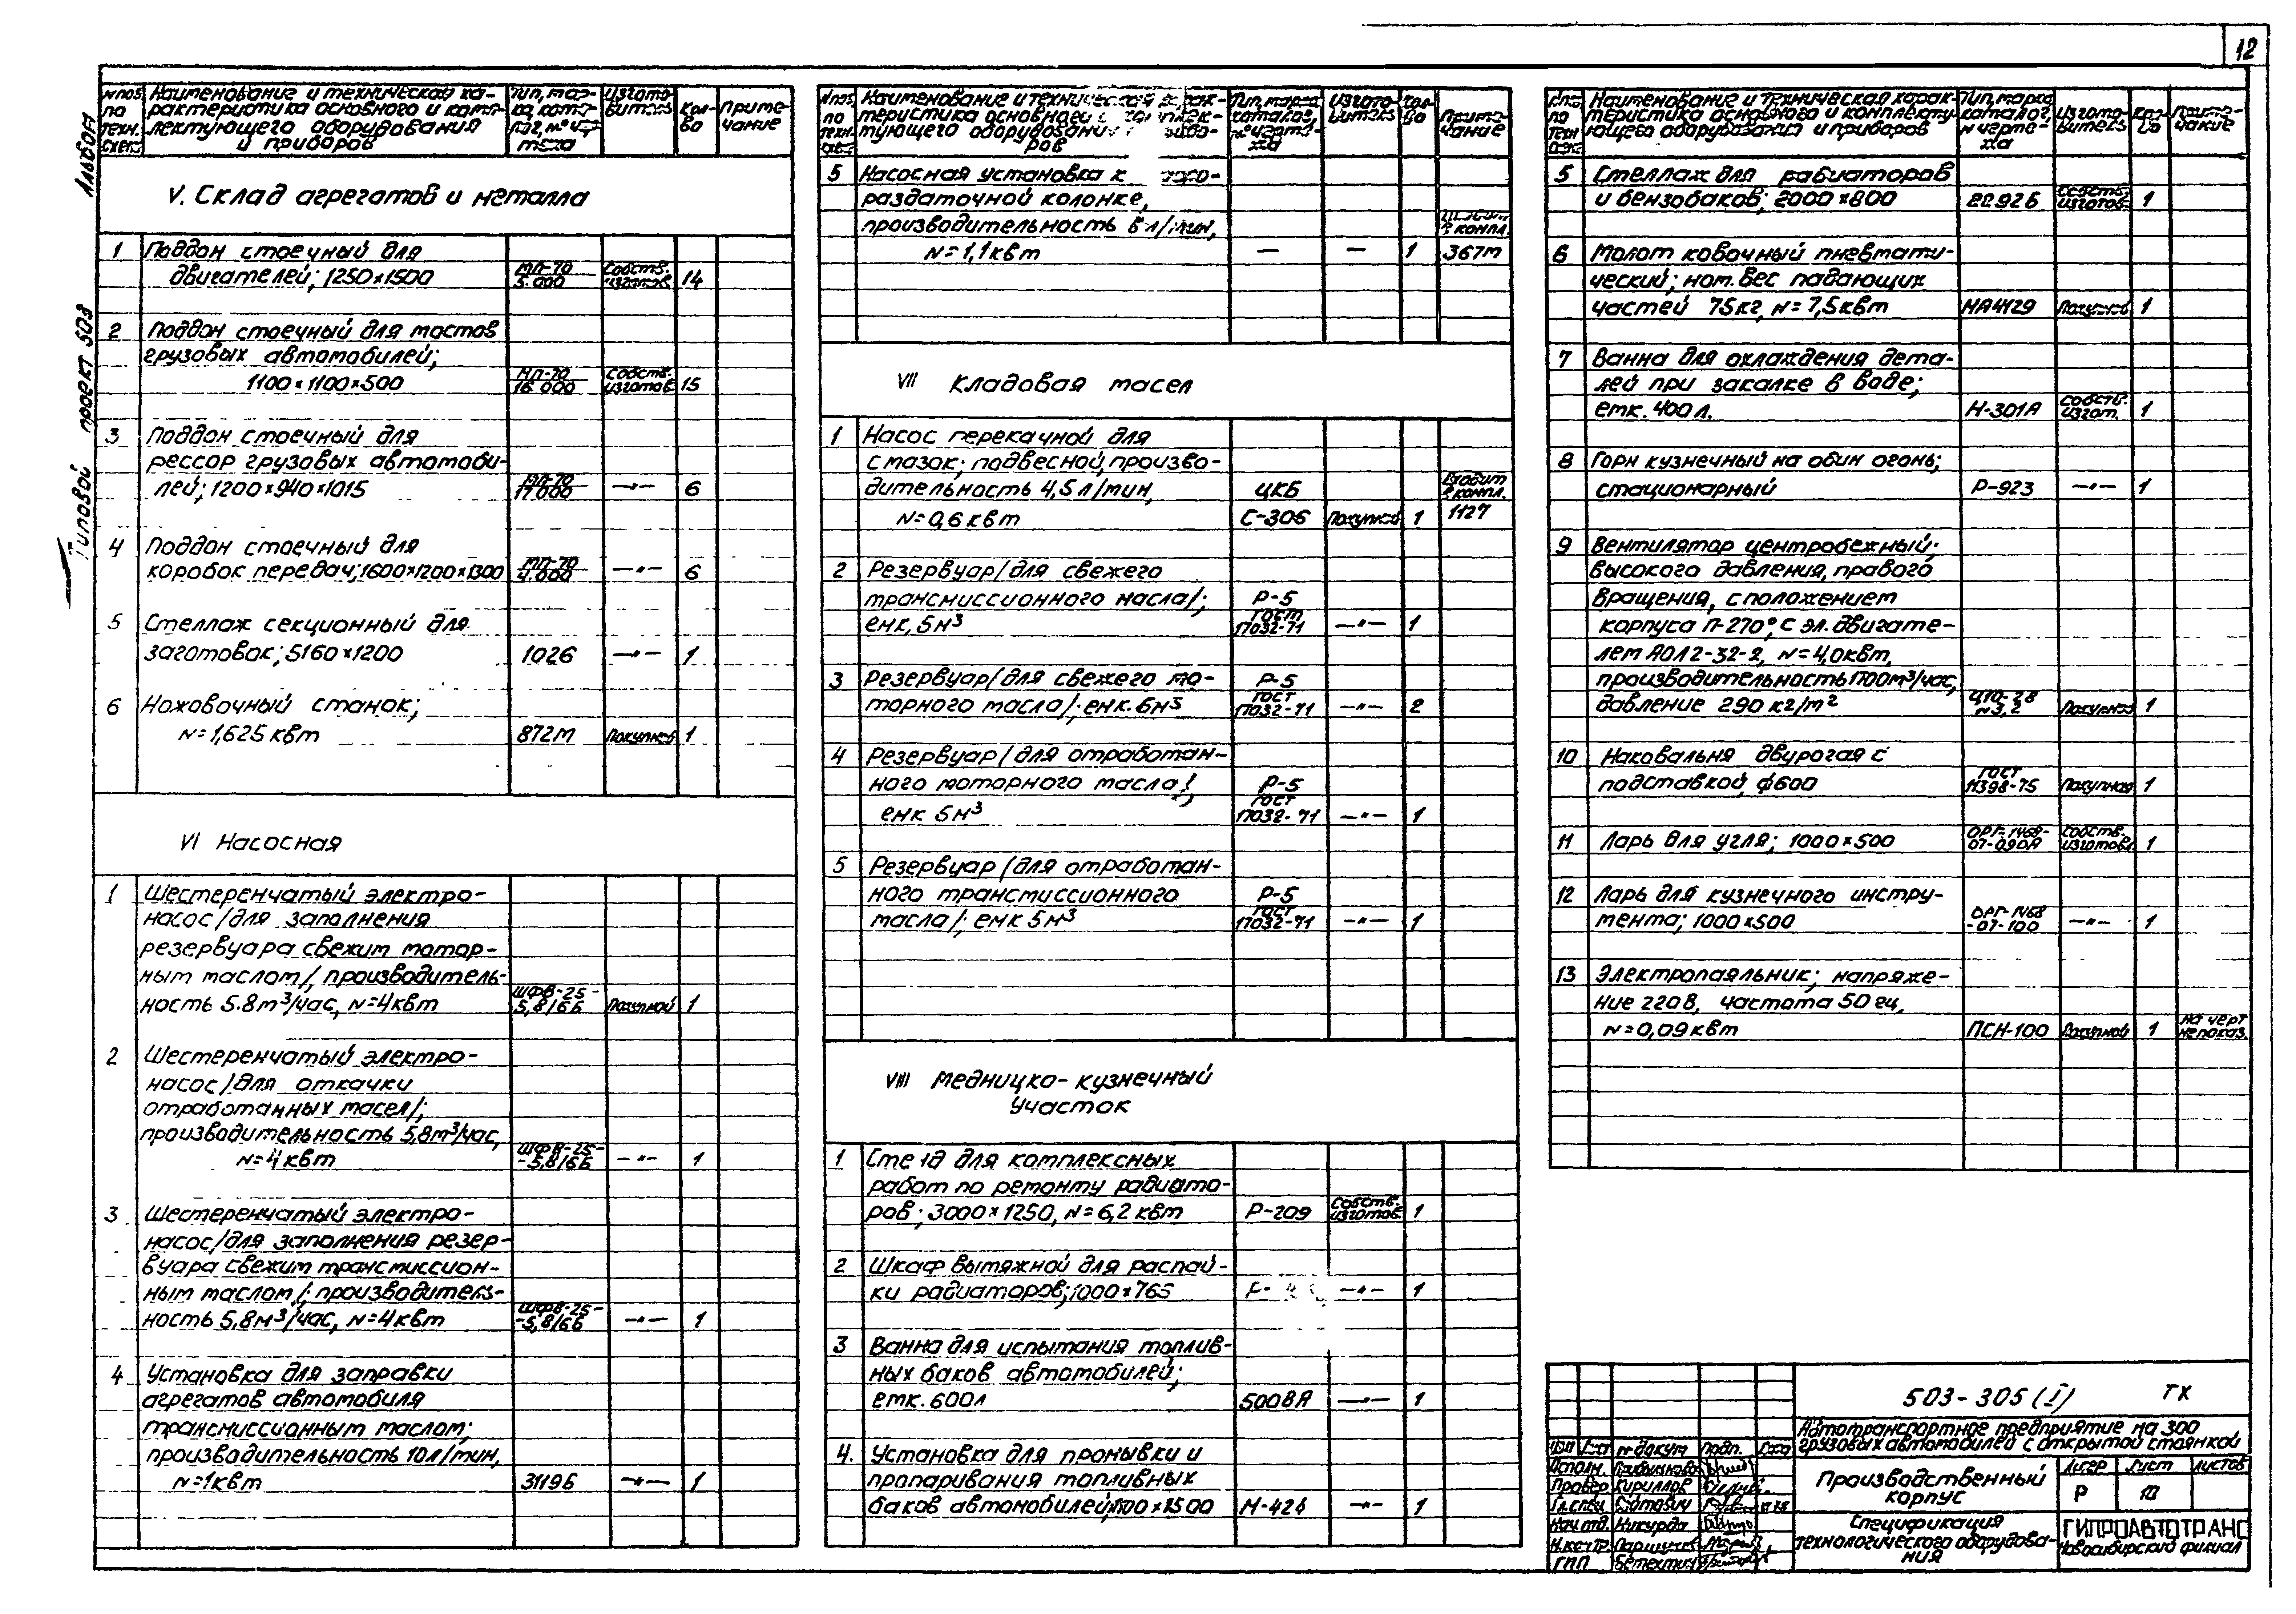 12
Альбом
Типовой проект 503
№ поз. по техн. схеме
Наименование и техническая ха-
рактеристика основного и комп-
лектующего оборудования
и приборов
Тип, мар-
ка, ката-
лог, № чер-
тежа
Изгото-
витель
Кол-
во
Приме-
чание
V. Склад агрегатов и металла
1 Поддон стоечный для
двигателей; 1250×1500 МП-70 5.000 Собств. изготов. 14
2 Поддон стоечный для мостов
грузовых автомобилей;
1100×1100×500 МП-70 16.000 Собств. изготов. 15
3 Поддон стоечный для
рессор грузовых автомоби-
лей; 1200×940×1015 МП-70 17.000 —"— 6
4 Поддон стоечный для
коробок передач; 1600×1200×1300 МП-70 4.000 —"— 6
5 Стеллаж секционный для
заготовок; 5160×1200 1026 —"— 1
6 Ножовочный станок;
N=1,625 квт 872М Покупной 1
VI Насосная
1 Шестеренчатый электро-
насос /для заполнения
резервуара свежим мотор-
ным маслом/, производитель-
ность 5.8 м³/час, N=4 квт ШФВ-25-5,8/6Б Покупной 1
2 Шестеренчатый электро-
насос /для откачки
отработанных масел/;
производительность 5,8 м³/час,
N=4 квт ШФВ-25--5,8/6Б —"— 1
3 Шестеренчатый электро-
насос /для заполнения резер-
вуара свежим трансмиссион-
ным маслом/; производитель-
ность 5,8 м³/час, N=4 квт ШФВ-25--5,8/6Б —"— 1
4 Установка для заправки
агрегатов автомобиля
трансмиссионным маслом;
производительность 10 л/мин,
N=1 квт 3119Б —"— 1
№ поз. по техн. схеме
Наименование и техническая харак-
теристика основного и комплек-
тующего оборудования и прибо-
ров
Тип, марка
каталог,
№ черте-
жа
Изгото-
витель
Кол-
во
Приме-
чание
5 Насосная установка к
раздаточной колонке,
производительность 8 л/мин,
N=1,1 квт — — 1 в компл. 367М
VII Кладовая масел
1 Насос перекачной для
смазок; подвесной, произво-
дительность 4,5 л/мин, ЦКБ Входит в компл.
N=0,6 квт С-306 Покупной 1 1127
2 Резервуар /для свежего
трансмиссионного масла/; Р-5
емк. 5м³ ГОСТ 17032-71 —"— 1
3 Резервуар /для свежего мо- Р-5
торного масла/; емк. 5м³ ГОСТ 17032-71 —"— 2
4 Резервуар /для отработан-
ного моторного масла/; Р-5
емк 5м³ ГОСТ 17032-71 —"— 1
5 Резервуар /для отработан-
ного трансмиссионного Р-5
масла/; емк 5м³ ГОСТ 17032-71 —"— 1
VIII Медницко-кузнечный
участок
1 Стенд для комплексных
работ по ремонту радиато-
ров; 3000×1250, N=6,2 квт Р-209 Собств. изготов. 1
2 Шкаф вытяжной для распай-
ки радиаторов; 1000×765 —"— 1
3 Ванна для испытания топлив-
ных баков автомобилей;
емк. 600л 5008А —"— 1
4. Установка для промывки и
пропаривания топливных
баков автомобилей; М-424 —"— 1
№ поз. по техн. схеме
Наименование и техническая харак-
теристика основного и комплекту-
ющего оборудования и приборов
Тип, марка
каталог,
№ черте-
жа
Изгото-
витель
Кол-
во
Приме-
чание
5 Стеллаж для радиаторов
и бензобаков; 2000×800 2292Б Собств. изготов. 1
6 Молот ковочный пневмати-
ческий; ном. вес падающих
частей 75кг, N=7,5квт МА4129 Покупной 1
7 Ванна для охлаждения дета-
лей при закалке в воде;
емк. 400 л. Н-301А Собств. изгот. 1
8 Горн кузнечный на один огонь;
стационарный Р-923 —"— 1
9 Вентилятор центробежный;
высокого давления, правого
вращения, с положением
корпуса П-270°, с эл. двигате-
лем АОЛ2-32-2, N=4,0квт,
производительность 1700м³/час,
давление 290 кг/м² Ц10-28 №3,2 Покупной 1
10 Наковальня двурогая с
подставкой, ф600 ГОСТ 11398-75 Покупная 1
11 Ларь для угля; 1000×500 ОРГ-1468-07-090А Собств. изготовл. 1
12 Ларь для кузнечного инстру-
мента; 1000×500 ОРГ-1468-07-100 —"— 1
13 Электропаяльник; напряже-
ние 220В, частота 50 гц,
N=0,09 квт ПСН-100 Покупной 1 на черт не показ.
503-305 (I) ТХ
Автотранспортное предприятие на 300
грузовых автомобилей с открытой стоянкой
№ докум Подп.
Исполн.
Провер Кириллов
Гл. спец.
Нач отд.
Н.контр.
ГИП
Производственный
корпус
Литер Лист Листов
Р 10
Спецификация
технологического оборудова-
ния
ГИПРОАВТОТРАНС
Новосибирский филиал